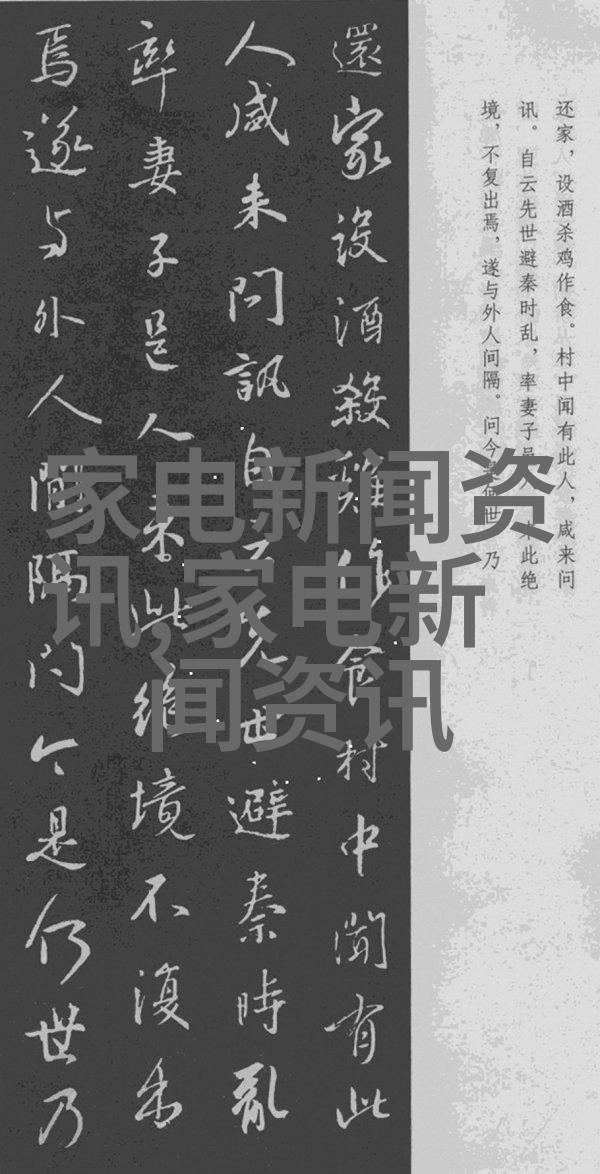 还家，设酒杀鸡作食。村中闻有此人，咸来问
讯。自云先世避秦时乱，率妻子来此绝
境，不复出焉，遂与外人间隔。问今何世，乃
還家設酒殺雞作食村中聞有此
人咸来问訊自云先世避秦時亂
率妻子邑人来此絶境不復出
焉遂与外人间隔问今是何世乃
家电新闻资
讯 家电新
闻资讯